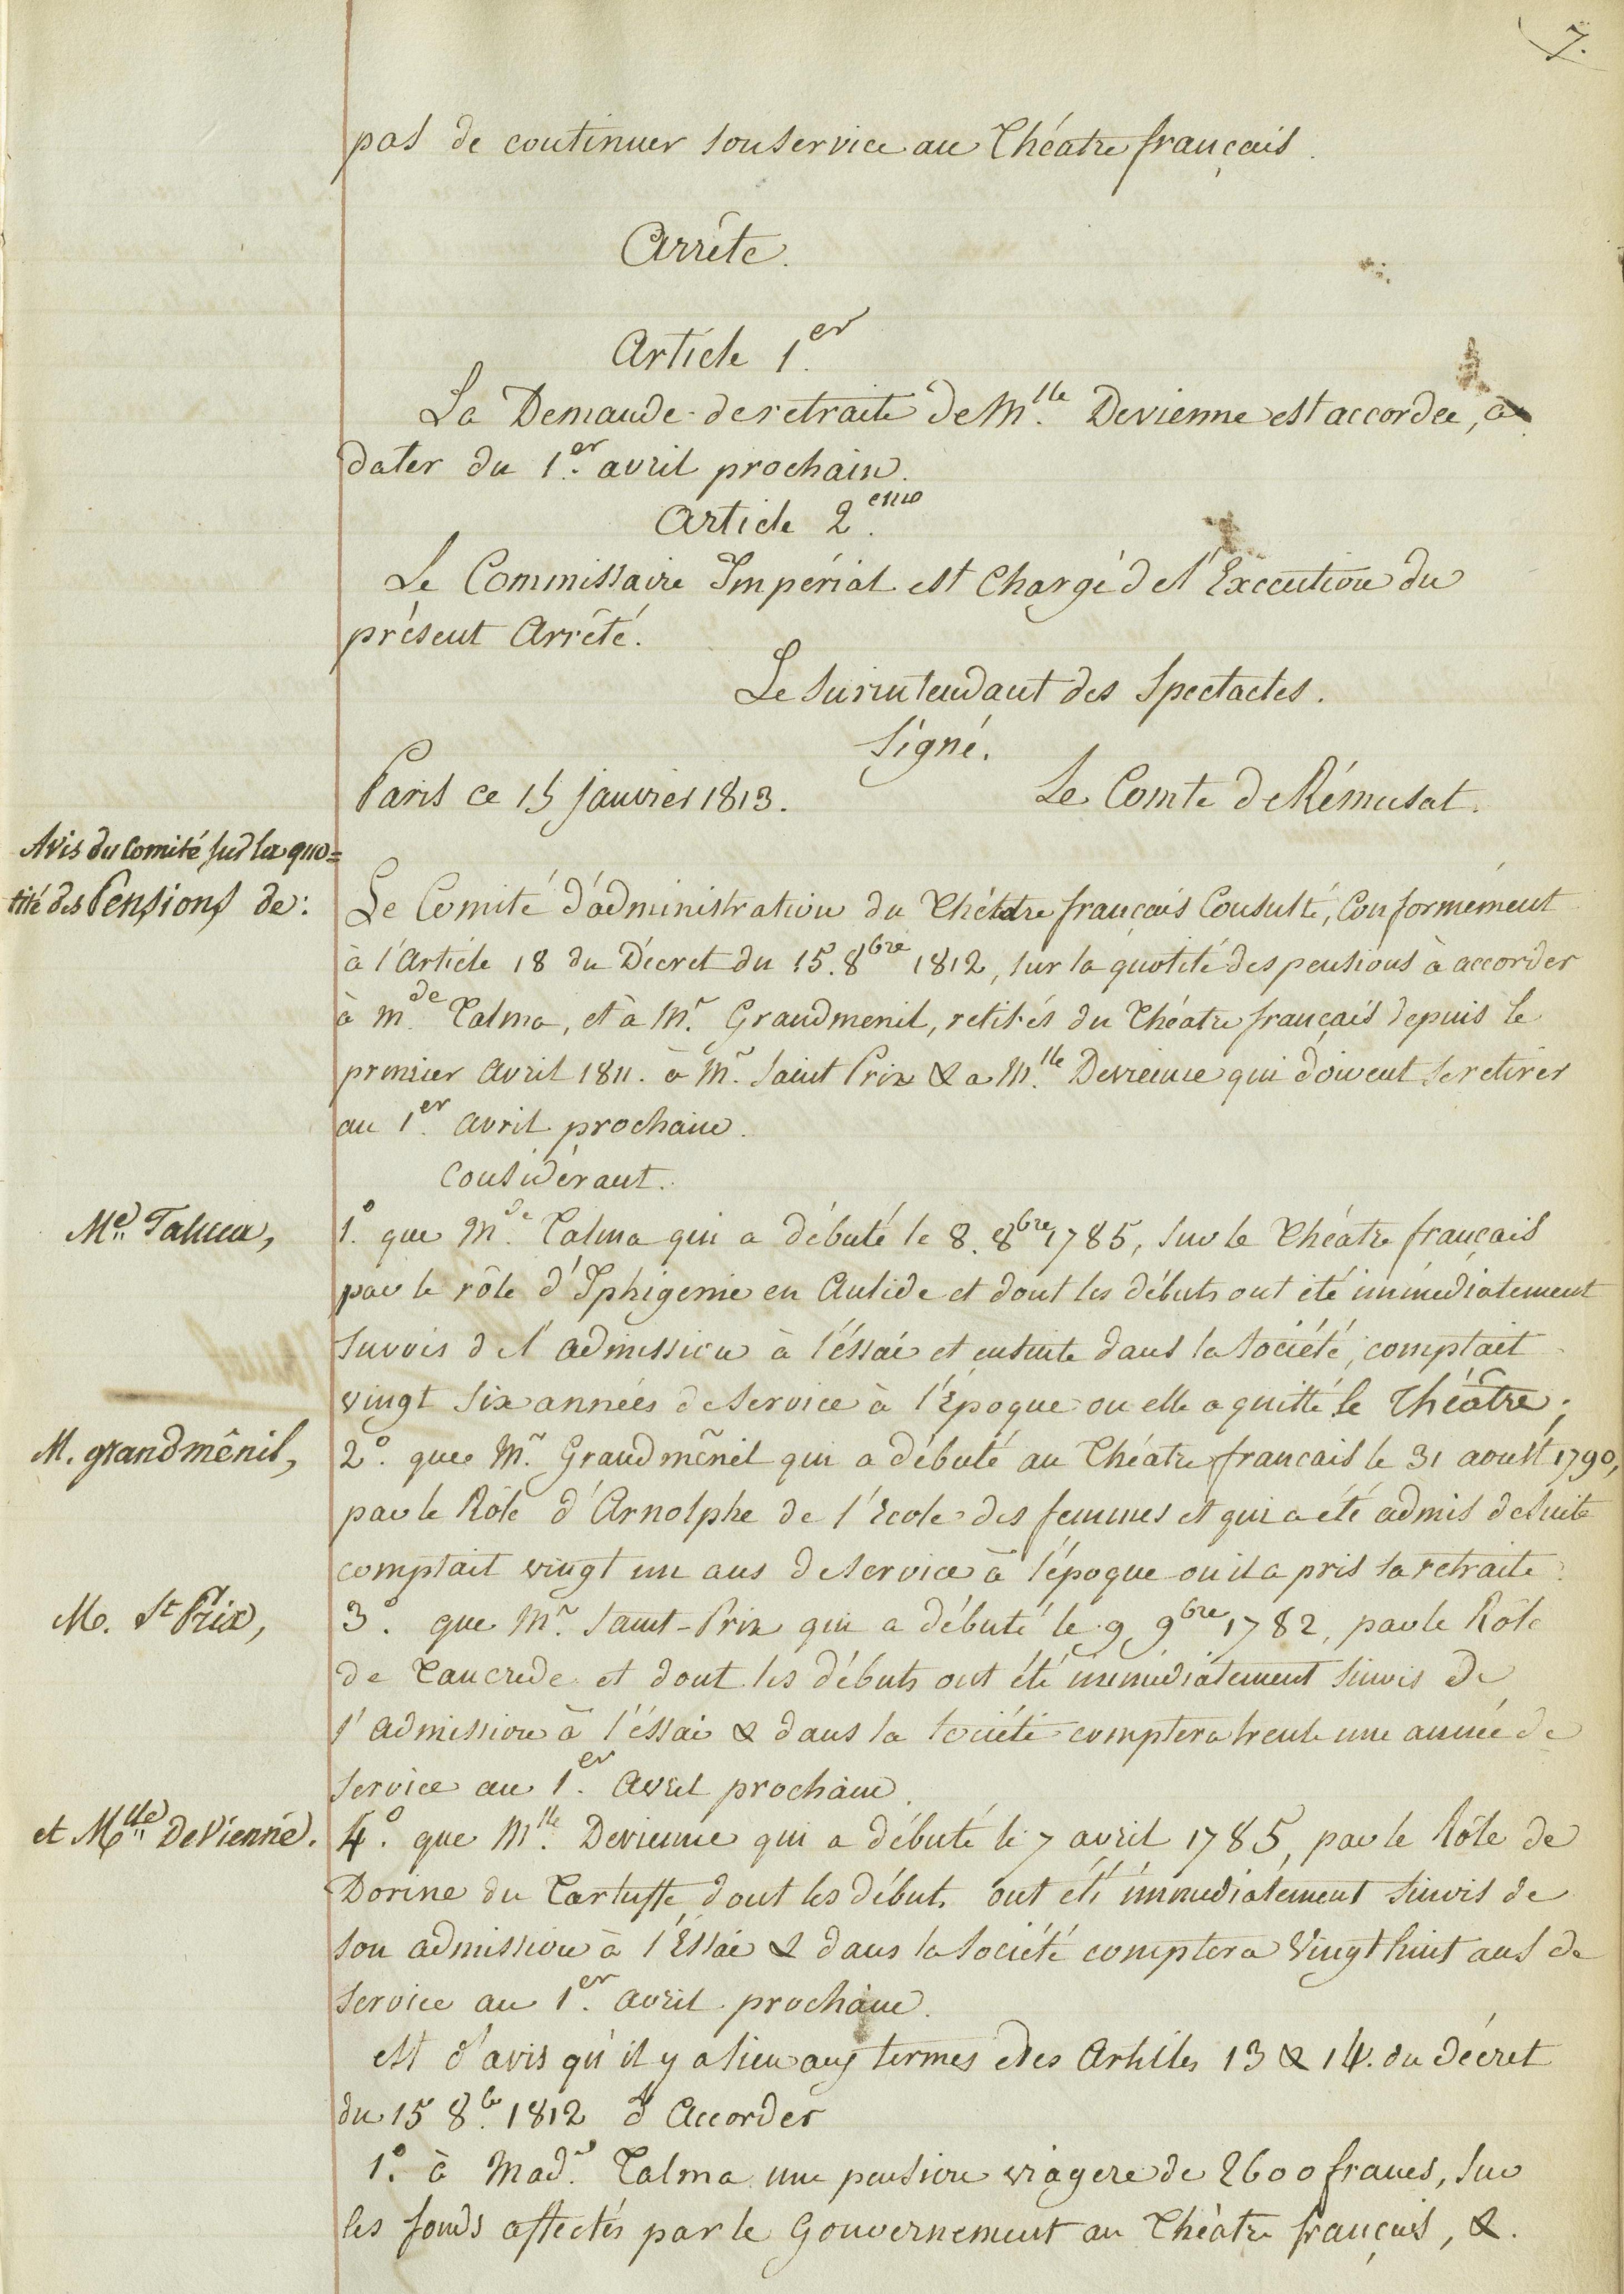 7.
pas de continuer son service au Théatre français.
Arrête.
Article 1.er
La Demande de retraite de M.lle Devienne est accordée, à
dater du 1.er avril prochain.
Article 2.eme
Le Commissaire Impérial est Chargé de l'Exécution du
présent Arrêté.
Le Surintendant des Spectacles.
Signé.
Paris ce 15 janvier 1813. Le Comte de Rémusat.
Avis du Comité sur la quo=
tité des Pensions de:
Le Comité d'administration du Théâtre français Consulté, Conformément
à l'Article 18 du Décret du 15. 8bre 1812, sur la quotité des pensions à accorder
à M.de Talma, et à M.r Grandmenil, retirés du Théatre français depuis le
premier Avril 1811. à M.r Saint Prix & a M.lle Devienne qui doivent se retirer
au 1.er avril prochain.
Considérant.
Me. Talma,
1.° que M.de Talma qui a débuté le 8. 8bre 1785, sur le Théatre français
par le rôle d'Iphigenie en Aulide et dont les débuts ont été immédiatement
suivis de l'admission à l'éssai et ensuite dans la Société, comptait
vingt six années de service à l'Époque ou elle a quitté le Théâtre;
M. grandmênil,
2.° que M.r Grandmênil qui a débuté au Théatre francais le 31 aoust 1790,
par le Rôle d'Arnolphe de l'Ecole des femmes et qui a été admis de suite
comptait vingt un ans de service à l'époque ou il a pris sa retraite.
M. St Prix,
3.° que M.r Saint-Prix qui a débuté le 9 9bre 1782, par le Rôle
de Tancrede et dont les débuts ont été immédiatement suivis de
l'admission à l'éssai & dans la Société comptera trente une année de
service au 1.er Avril prochain.
et Mlle DeVienne.
4.° que M.lle Devienne qui a débuté le 7 avril 1785, par le Rôle de
Dorine du Tartuffe, dont les débuts ont été immédiatement suivis de
son admission à l'Essai & dans la Société comptera Vingt huit ans de
service au 1.er avril prochain.
est d'avis qu'il y a lieu aux termes des Articles 13 & 14. du décret
du 15 8.bre 1812 d'Accorder
1.° à Mad.e Talma une pension viagere de 2600 francs, sur
les fonds affectés par le Gouvernement au Théatre français, &.